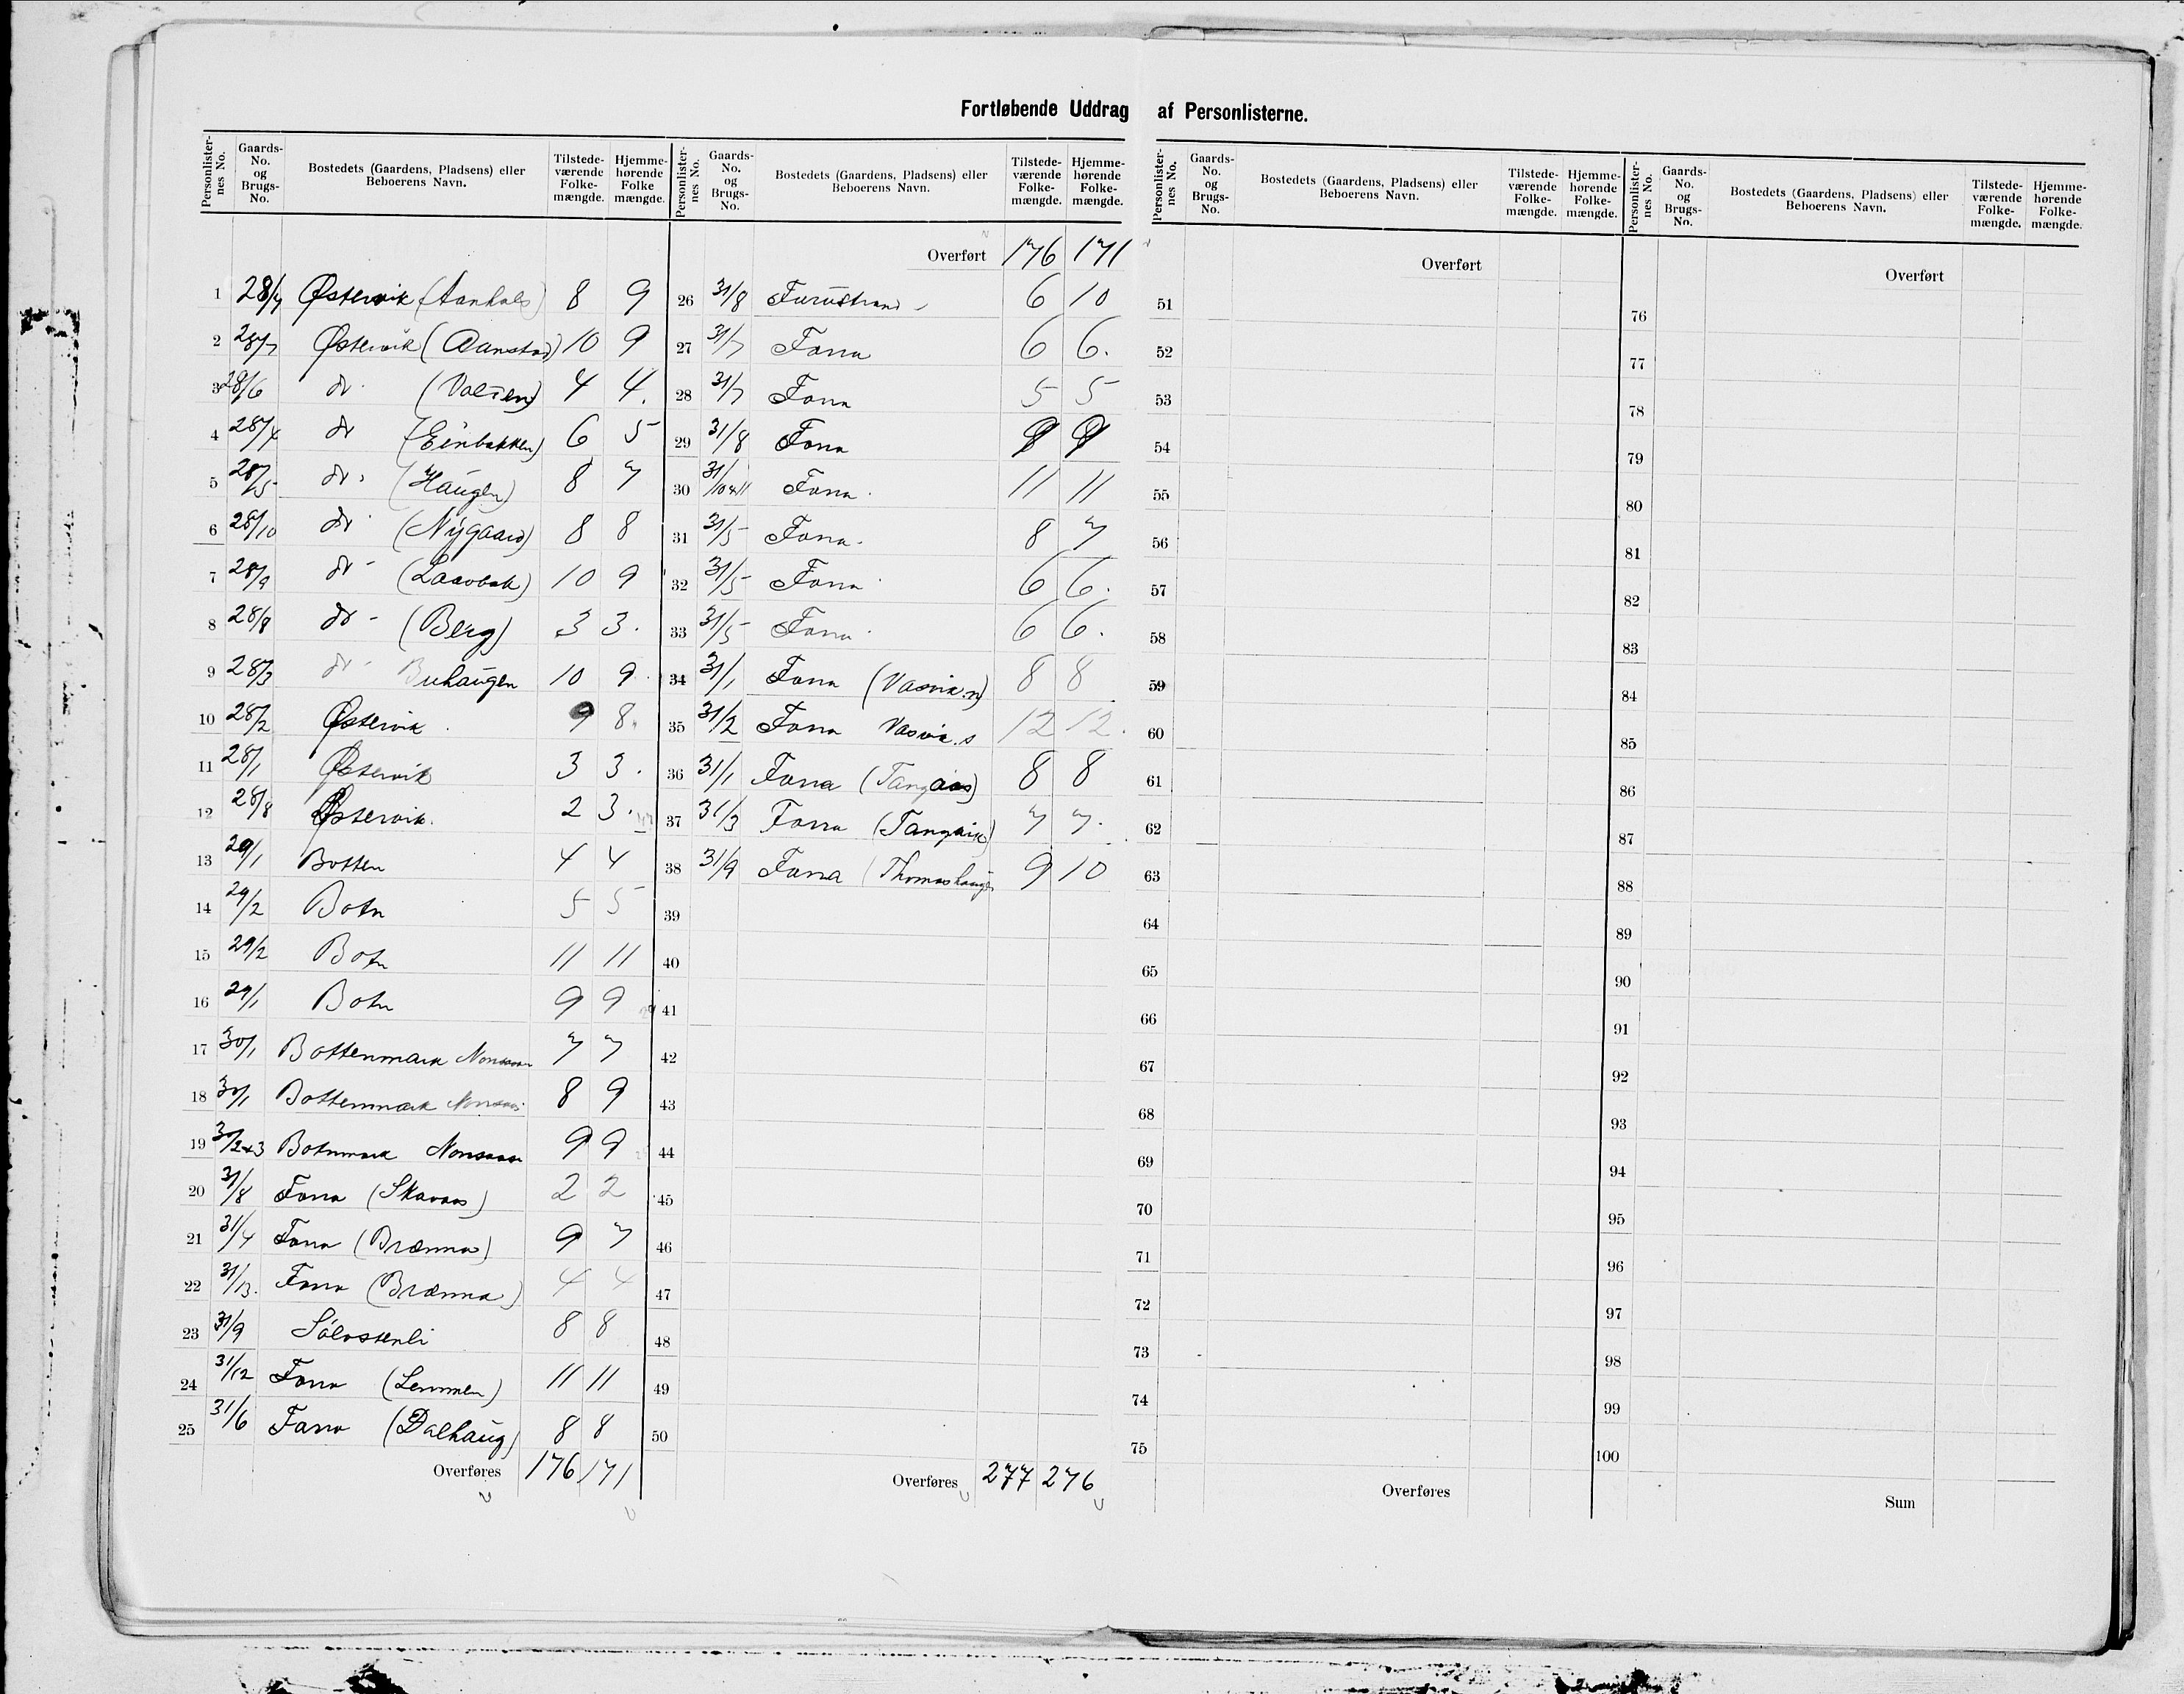 Fortløbende Uddrag af Personlisterne.
Personlisternes No. Gaards-No. og Brugs-No. Bostedets (Gaardens, Pladsens) eller Beboerens Navn. Tilstedeværende Folkemængde. Hjemmehørende Folke mængde.
1 28/4 Østervik 8 9
2 28/7 Østervik (Aanstad) 10 9
3 28/6 do. (Volden) 4 4.
4 28/4 do (Einbakken) 6 5
5 28/5 do. (Haugen) 8 7
6 28/10 do. (Nygaard) 8 8
7 28/9 do - (Laavbak) 10 9
8 28/8 do - (Berg) 3 3.
9 28/3 do - Buhaugen 10 9.
10 28/2 Østervik. 9 8.
11 28/1 Østervik 3 3.
12 28/8 Østervik. 2 3.
13 29/1 Botten 4 4
14 29/2 Botn 5 5
15 29/2 Botn 11 11
16 29/1 Botn 9 9
17 30/1 Bottenmark 7 7
18 30/1 Bottenmark 8 9
19 30/2+3 Botnmark 9 9
20 31/8 Fona (Skavaas) 2 2
21 31/4 Fona (Brænna) 9 7
22 31/13. Fona (Brænna) 4 4
23 31/9 Sölvstenli 8 8
24 31/12 Fona (Lemmen) 11 11
25 31/6 Fona (Dalhaug) 8 8
Overføres 176 171
Personlisternes No. Gaards-No. og Brugs-No. Bostedets (Gaardens, Pladsens) eller Beboerens Navn. Tilstedeværende Folkemængde. Hjemmehørende Folkemængde.
Overført 176 171
26 31/8 Furustrand 6 10
27 31/7 Fona 6 6.
28 31/7 Fona 5 5
29 31/8 Fona 9 9
30 31/10+11 Fona. 11 11
31 31/5 Fona. 8 7
32 31/5 Fona 6 6.
33 31/5 Fona. 6 6.
34 31/1 Fona (Vasvik.n) 8 8
35 31/2 Fona Vasvik.s 12 12.
36 31/1 Fona (Tangaas) 8 8
37 31/3 Fona 7 7.
38 31/9 Fona (Thomashaugen 9 10
39
40
41
42
43
44
45
46
47
48
49
50
Overføres 277 276
Personlisternes No. Gaards-No. og Brugs-No. Bostedets (Gaardens, Pladsens) eller Beboerens Navn. Tilstedeværende Folkemængde. Hjemmehørende Folkemængde.
Overført
51
52
53
54
55
56
57
58
59
60
61
62
63
64
65
66
67
68
69
70
71
72
73
74
75
Overføres
Personlisternes No. Gaards-No. og Brugs-No. Bostedets (Gaardens, Pladsens) eller Beboerens Navn. Tilstedeværende Folkemængde. Hjemmehørende Folkemængde.
Overført
76
77
78
79
80
81
82
83
84
85
86
87
88
89
90
91
92
93
94
95
96
97
98
99
100
Sum